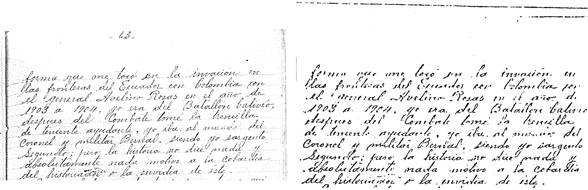 - 63 -
forma que me tocó en la invación en
las fronteras del Ecuador con Colombia con
el general Avelino Rosas en el año de
1903 a 1904, yo era del Batallon
despues del Combate tomé la
de teniente ayudante, yo iba al mando del
Coronel y militar Bernal, siendo yo sargento
Segundo; pero la historia no dice nada y
absolutamente nada motivo a la cobardia
del historiador o la envidia de esto.
forma que me tocó en la invación en
las fronteras del Ecuador con Colombia con
el general Avelino Rosas en el año de
1903 a 1904, yo era del Batallon
despues del Combate tomé la
de teniente ayudante, yo iba al mando del
Coronel y militar Bernal, siendo yo sargento
Segundo; pero la historia no dice nada y
absolutamente nada motivo a la cobardia
del historiador o la envidia de esto.